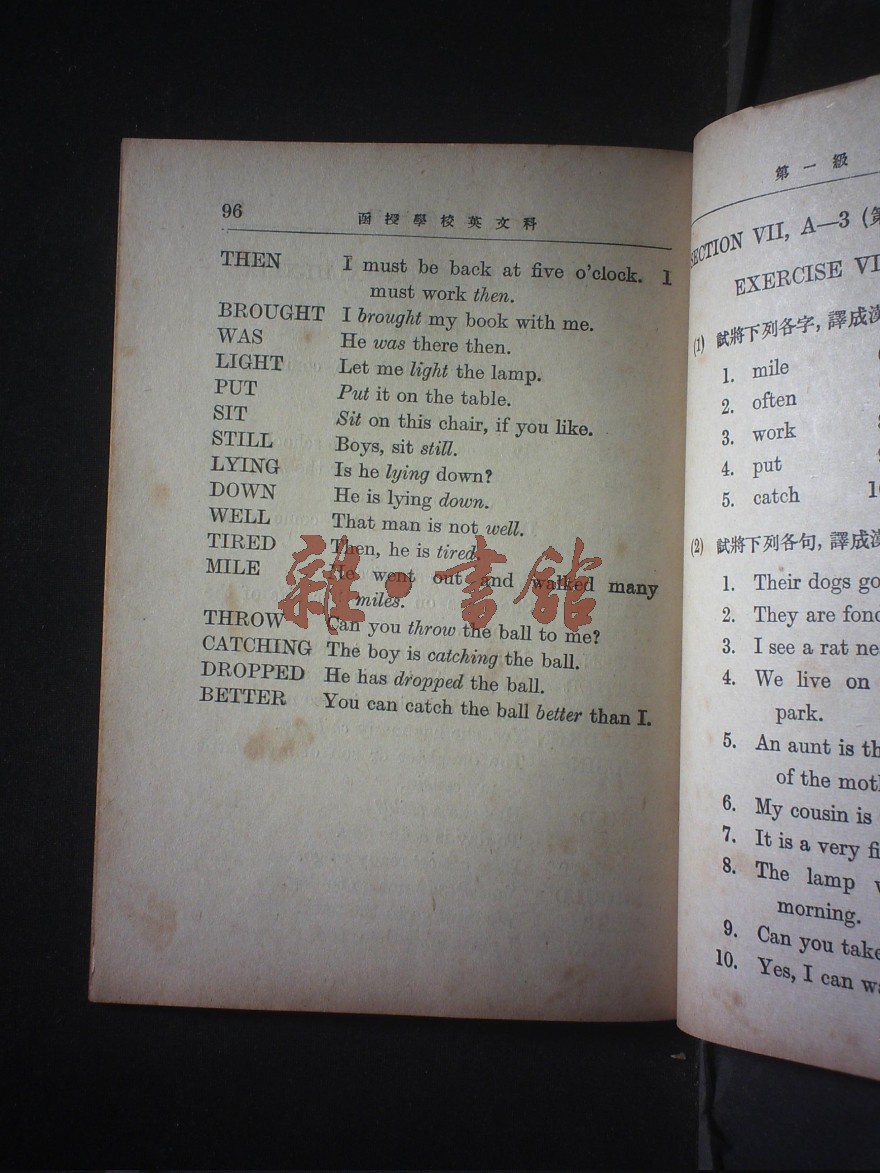 96 函授學校英文科
THEN I must be back at five o'clock. I
must work then.
BROUGHT I brought my book with me.
WAS He was there then.
LIGHT Let me light the lamp.
PUT Put it on the table.
SIT Sit on this chair, if you like.
STILL Boys, sit still.
LYING Is he lying down?
DOWN He is lying down.
WELL That man is not well.
TIRED Then, he is tired.
MILE He went out and walked many
miles.
THROW Can you throw the ball to me?
CATCHING The boy is catching the ball.
DROPPED He has dropped the ball.
BETTER You can catch the ball better than I.
雜·書館
第一級
SECTION VII, A—3 (第
EXERCISE VI
(1) 試將下列各字，譯成漢
1. mile
2. often
3. work
4. put
5. catch
(2) 試將下列各句，譯成漢
1. Their dogs go
2. They are fond
3. I see a rat ne
4. We live on
park.
5. An aunt is th
of the moth
6. My cousin is
7. It is a very fi
8. The lamp w
morning.
9. Can you take
10. Yes, I can wa